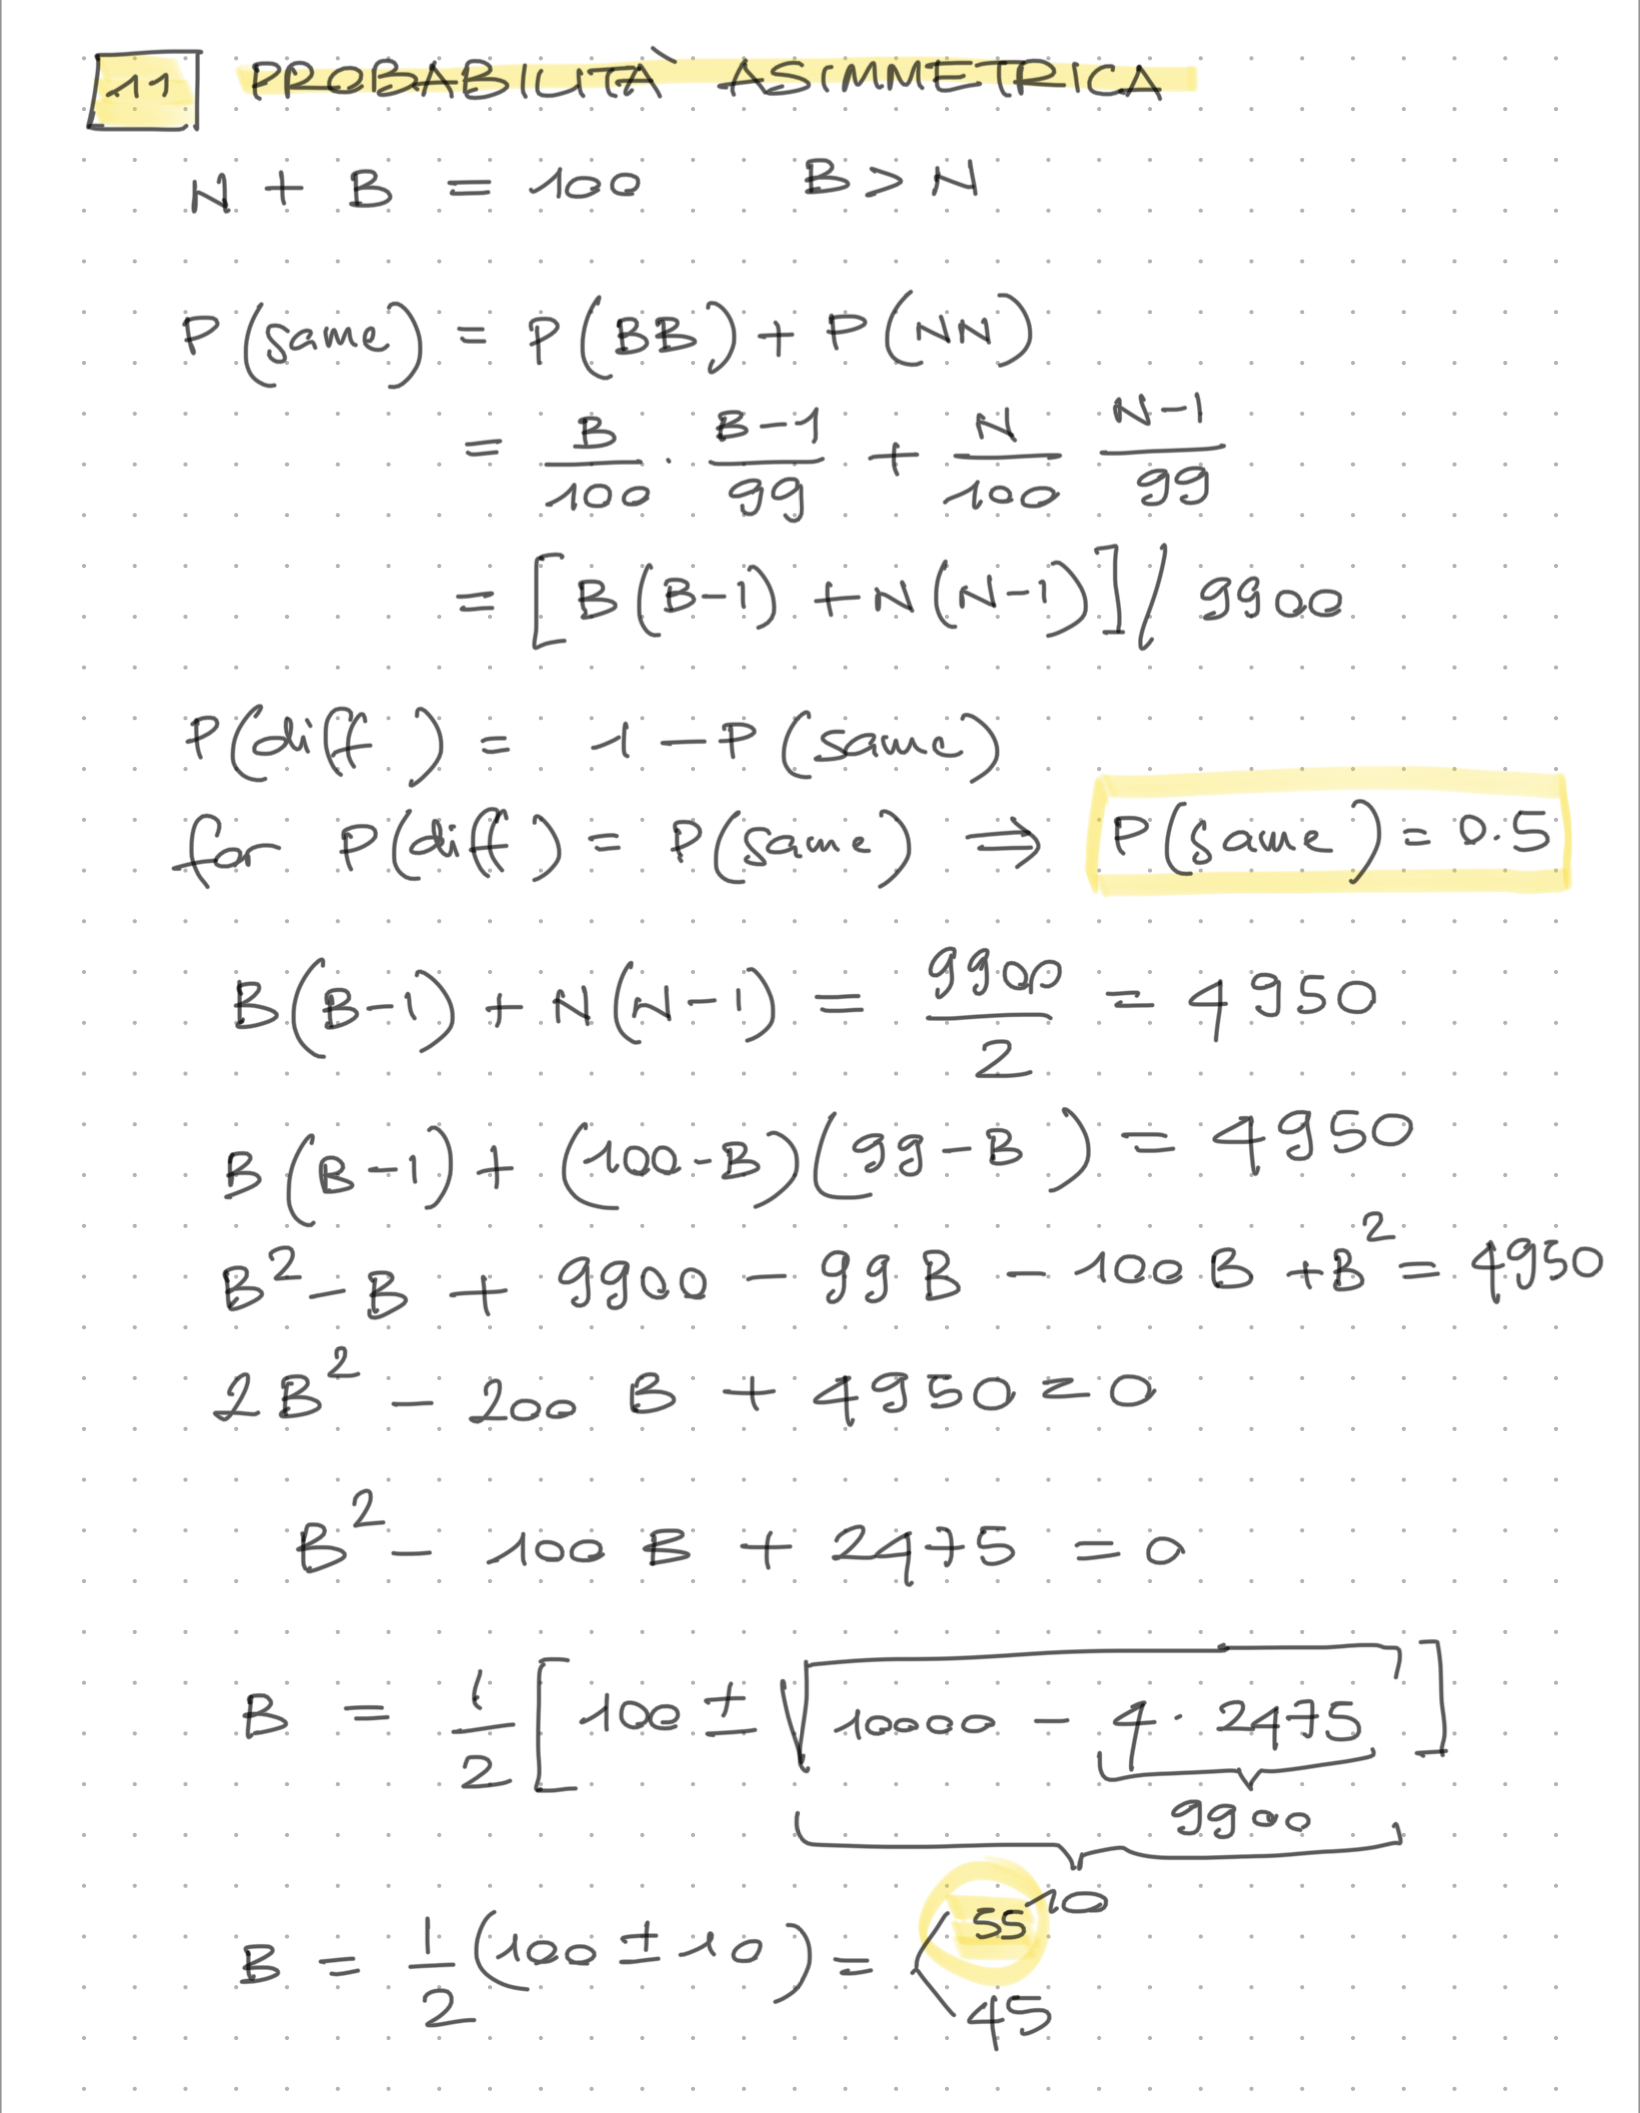 11 PROBABILITÀ ASIMMETRICA
N + B = 100 B > N
P(same) = P(BB) + P(NN)
= B/100 · (B-1)/99 + N/100 (N-1)/99
= [B(B-1) + N(N-1)] / 9900
P(diff) = 1 - P(same)
for P(diff) = P(same) ⇒ P(same) = 0.5
B(B-1) + N(N-1) = 9900/2 = 4950
B(B-1) + (100-B)(99-B) = 4950
B² - B + 9900 - 99B - 100B + B² = 4950
2B² - 200 B + 4950 = 0
B² - 100 B + 2475 = 0
B = 1/2 [100 ± √(10000 - 4 · 2475)]
9900
10
B = 1/2 (100 ± 10) = < 55
45